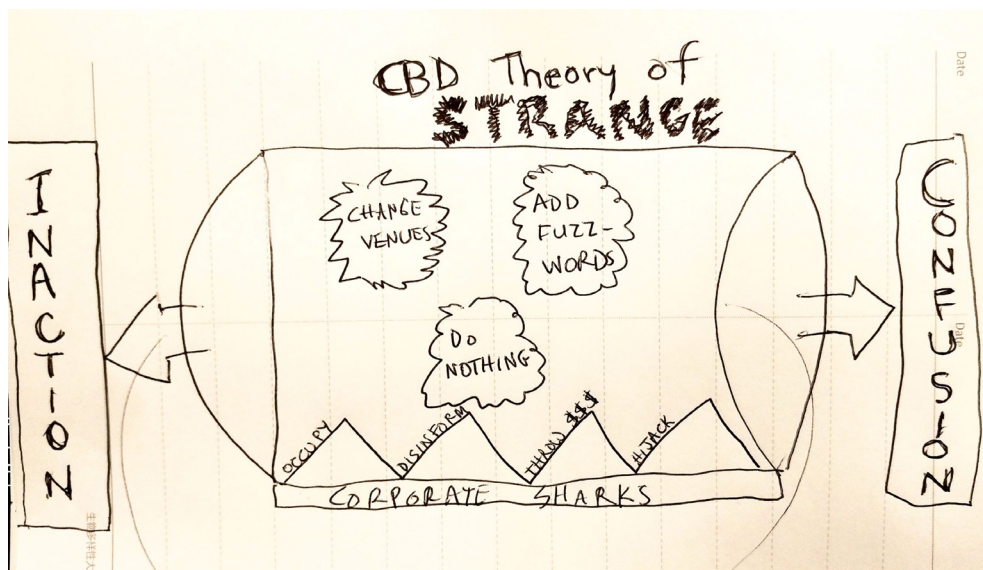 CBD Theory of
STRANGE
INACTION
CHANGE
VENUES
ADD
FUZZ-
WORDS
DO
NOTHING
OCCUPY
DISINFORM
THROW $$$
HIJACK
CORPORATE SHARKS
CONFUSION
Date
Date